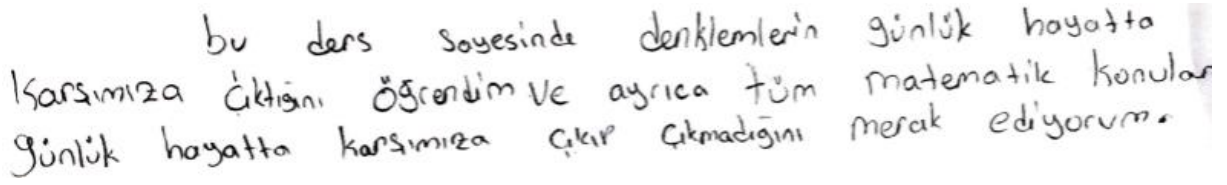 bu ders sayesinde denklemlerin günlük hayatta
karşımıza çıktığını öğrendim ve ayrıca tüm matematik konular
günlük hayatta karşımıza çıkıp çıkmadığını merak ediyorum.